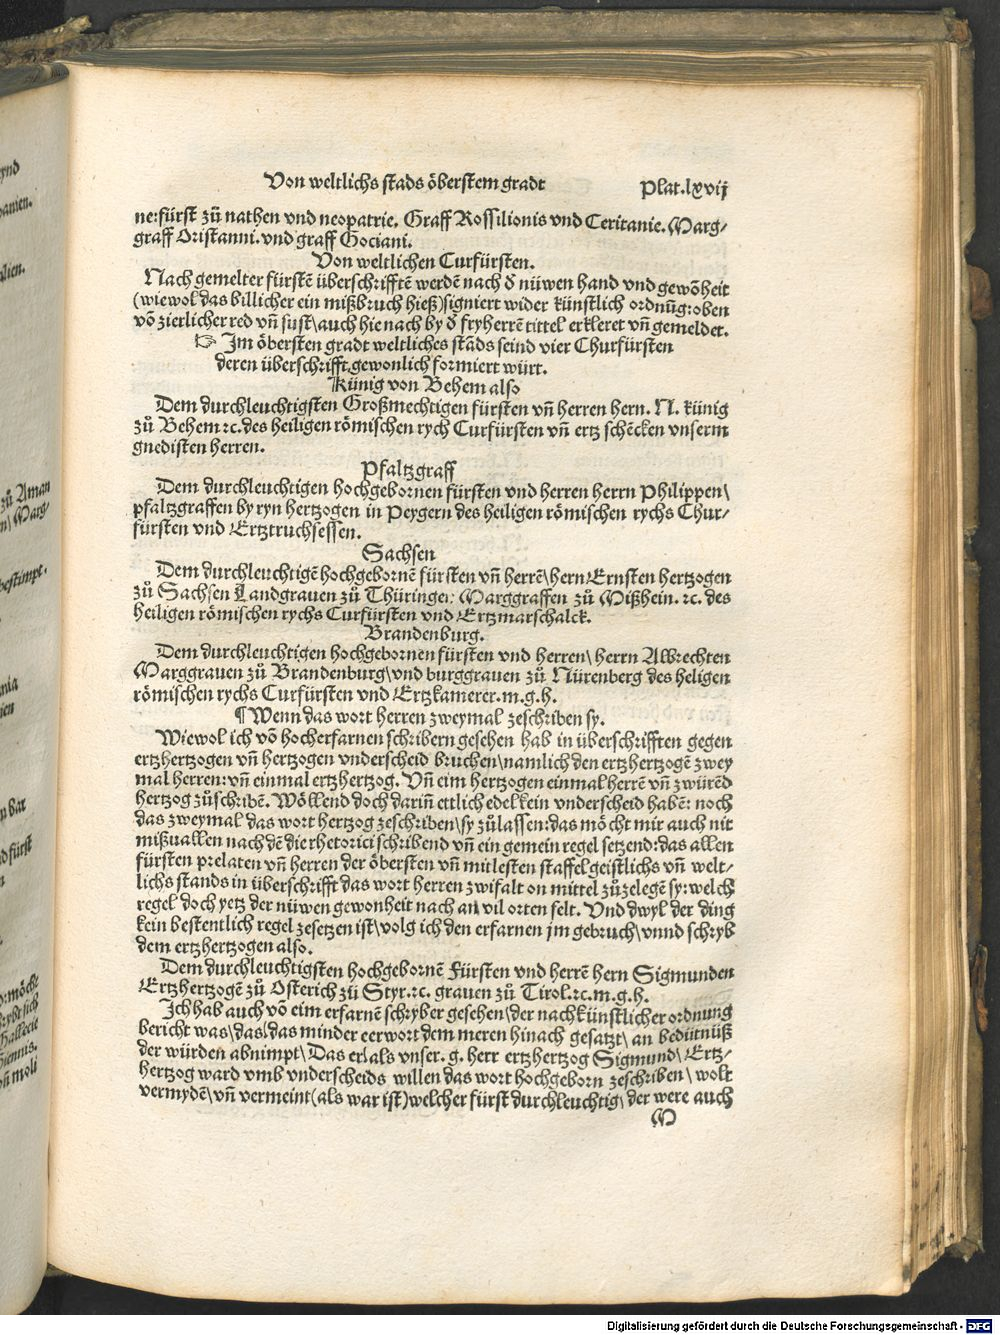 Von weltlichs stads öberstem gradt Plat.lxvij
ne:fürst zů nathen vnd neopatrie. Graff Rossilionis vnd Ceritanie. Marg⸗
graff Oristanni. vnd graff Gociani.
Von weltlichen Curfürsten.
Nach gemelter fürstē überschrifftē werdē nach d̄ nüwen hand vnd gewōheit
(wiewol das billicher ein mißbruch hieß)signiert wider künstlich ordnūg:oben
vō zierlicher red vñ sust\auch hie nach by d̄ fryherrē tittel erkleret vñ gemeldet.
☞ Im öbersten gradt weltliches stāds seind vier Churfürsten
deren überschrifft.gewonlich formiert würt.
Künig von Behem also
Dem durchleuchtigsten Großmechtigen fürsten vñ herren hern. N. künig
zů Behem ꝛc.des heiligen römischen rych Curfürsten vñ ertz schēcken vnserm
gnedisten herren.
Pfaltzgraff
Dem durchleuchtigen hochgebornen fürsten vnd herren herrn Philippen\
pfaltzgraffen by ryn hertzogen in Peygern des heiligen römischen rychs Chur⸗
fürsten vnd Ertztruchsessen.
Sachsen
Dem durchleuchtigē hochgebornē fürsten vñ herrē\hern Ernsten hertzogen
zů Sachsen Landgrauen zů Thüringen: Marggraffen zů Mißhein. ꝛc. des
heiligen römischen rychs Curfürsten vnd Ertzmarschalck.
Brandenburg.
Dem durchleuchtigen hochgebornen fürsten vnd herren\ herrn Albrechten
Marggrauen zů Brandenburg\vnd burggrauen zů Nürenberg des heligen
römischen rychs Curfürsten vnd Ertzkamerer.m.g.h.
¶ Wenn das wort herren zweymal zeschriben sy.
Wiewol ich vō hocherfarnen schribern gesehen hab in überschrifften gegen
ertzhertzogen vñ hertzogen vnderscheid bruchen\namlich den ertzhertzogē zwey
mal herren: vñ einmal ertzhertzog. Vñ eim hertzogen einmal herrē vñ zwürēd
hertzog zůschribē. Wöllend doch dariñ ettlich edel kein vnderscheid habē: noch
das zweymal das wort hertzog zeschriben\sy zůlassen:das möcht mir auch nit
mißuallen nach dē die rhetorici schribend vñ ein gemein regel setzend:das allen
fürsten prelaten vñ herren der öbersten vñ mitlesten staffel geistlichs vñ welt⸗
lichs stands in überschrifft das wort herren zwifalt on mittel zůzelegē sy:welch
regel doch yetz der nüwen gewonheit nach an vil orten felt. Vnd dwyl der ding
kein bestentlich regel zesetzen ist\volg ich den erfarnen jm gebruch\vnnd schryb
dem ertzhertzogen also.
Dem durchleuchtigsten hochgebornē Fürsten vnd herrē hern Sigmunden
Ertzhertzogē zů Osterich zů Styr.ꝛc. grauen zů Tirol.ꝛc.m.g.h.
Ich hab auch vō eim erfarnē schryber gesehen\der nach künstlicher ordnung
bericht was\das.das minder eerwort dem meren hinach gesatzt\ an bedütnüß
der würden abnimpt\ Das er\als vnser. g. herr ertzhertzog Sigmund\ Ertz⸗
hertzog ward vmb vnderscheids willen das wort hochgeborn zeschriben\ wolt
vermydē\vñ vermeint(als war ist)welcher fürst durchleuchtig\ der were auch
M
ynd
panien.
alien.
zů Aman
n\ Marg⸗
bestimpt.
nia
ien
n bat
d fürst
n
:möcht
rybt sich
Hallecie
hiennis.
vñ moli
Digitalisierung gefördert durch die Deutsche Forschungsgemeinschaft - DFG